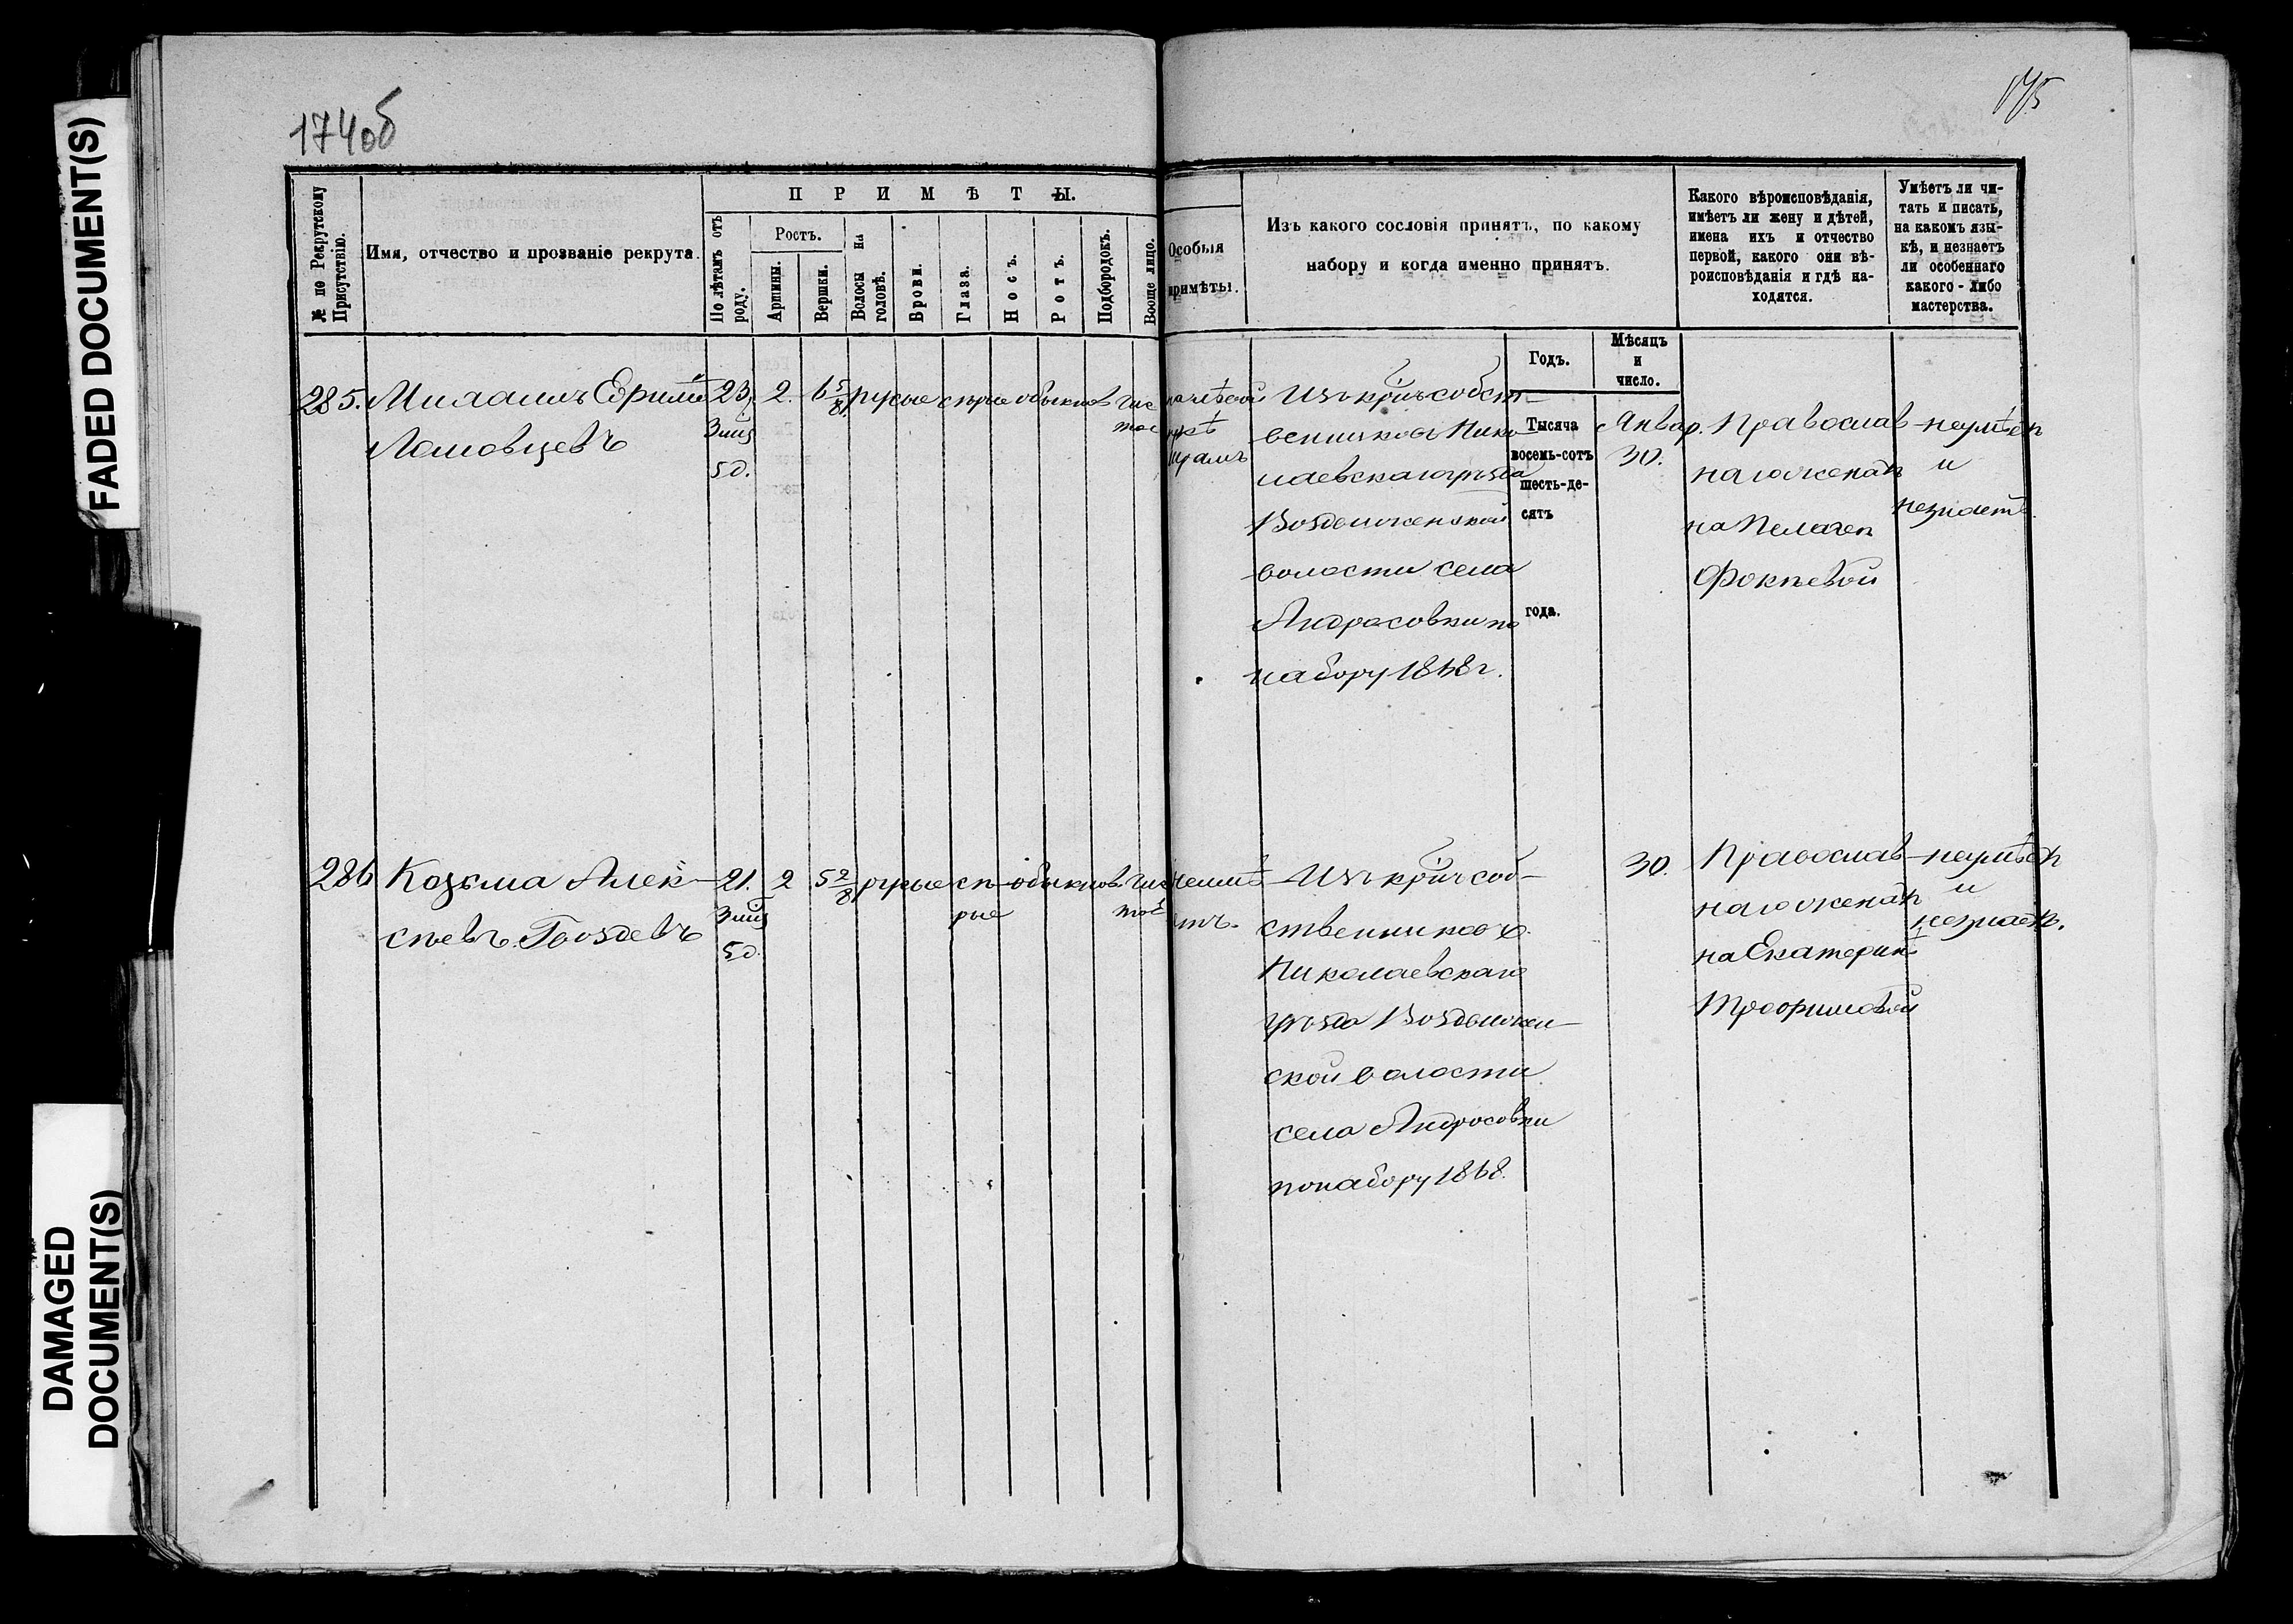 FADED DOCUMENT(S)
DAMAGED
DOCUMENT(S)
174об
175
№ по Рекрутскому
Присутствію.
Имя, отчество и прозваніе рекрута.
ПРИМѢТЫ.
По лѣтамъ отъ
роду.
Ростъ.
Аршины.
Вершки.
Волосы на
головѣ.
Брови.
Глаза.
Носъ.
Ротъ.
Подбородокъ.
Вооще лицо.
Особыя
примѣты.
Изъ какого сословія принятъ, по какому
набору и когда именно принятъ.
Годъ.
Мѣсяцъ
и
число.
Какого вѣроисповѣданія,
имѣетъ ли жену и дѣтей,
имена ихъ и отчество
первой, какого они вѣ-
роисповѣданія и гдѣ на-
ходятся.
Умѣетъ ли чи-
тать и писать,
на какомъ язы-
кѣ, и незнаетъ
ли особеннаго
какого-либо
мастерства.
285.
Михаилъ Ефимо
Ломовцевъ
23,
3 мѣц
5 д.
2.
6 5/8
русые
сѣрые
обыкнов
чис
тое
на лѣвой
рукѣ
шрамъ
Изъ кр. собст-
венниковъ Нико-
лаевскаго уѣзда
Воздвиженской
волости села
Андросовки по
набору 1868 г.
Тысяча
восемь-сотъ
шесть-де-
сятъ
года.
Январ.
30.
Православ-
наго женатъ
на Пелагеи
Фокеевой
неумѣетъ
и
незнаетъ.
286
Козьма Алек-
сѣевъ Гвоздевъ
21.
3 мѣц
5 д.
2
5 2/8
русые
сѣ-
рые
обыкнов.
чис
тое
неимѣ
етъ.
Изъ кр. соб-
ственниковъ
Николаевскаго
уѣзда Воздвижен-
ской волости
села Андросовки
по набору 1868.
30.
Православ-
наго женатъ
на Екатеринѣ
Трофимовой
неумѣетъ
и
незнаетъ.